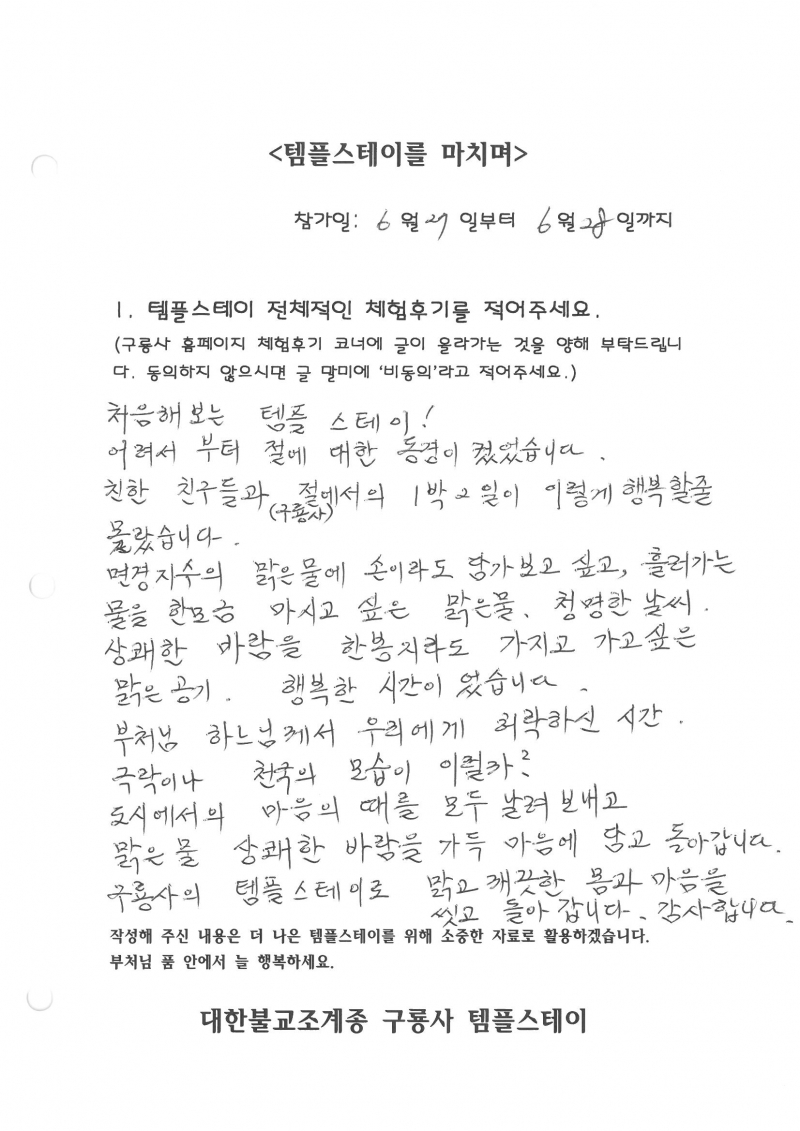 <템플스테이를 마치며>
참가일: 6 월 27 일부터 6 월 28 일까지
1. 템플스테이 전체적인 체험후기를 적어주세요.
(구룡사 홈페이지 체험후기 코너에 글이 올라가는 것을 양해 부탁드립니
다. 동의하지 않으시면 글 말미에 '비동의'라고 적어주세요.)
처음해보는 템플 스테이!
어려서 부터 절에 대한 동경이 컸었습니다.
친한 친구들과 절에서의 1박2일이 이렇게 행복할줄
(구룡사)
몰랐습니다.
면경지수의 맑은물에 손이라도 담가보고 싶고, 흘러가는
물을 한모금 마시고 싶은 맑은물. 청명한 날씨.
상쾌한 바람을 한봉지라도 가지고 가고싶은
맑은 공기. 행복한 시간이 었습니다.
부처님 하느님께서 우리에게 허락하신 시간.
극락이나 천국의 모습이 이럴까?
도시에서의 마음의 때를 모두 날려 보내고
맑은 물 상쾌한 바람을 가득 마음에 담고 돌아갑니다.
구룡사의 템플스테이로 맑고 깨끗한 몸과 마음을
씻고 돌아 갑니다. 감사합니다.
작성해 주신 내용은 더 나은 템플스테이를 위해 소중한 자료로 활용하겠습니다.
부처님 품 안에서 늘 행복하세요.
대한불교조계종 구룡사 템플스테이